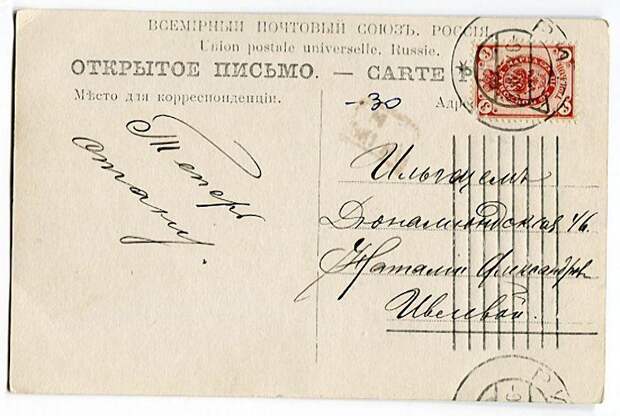 ВСЕМІРНЫЙ ПОЧТОВЫЙ СОЮЗЪ. РОССІЯ
Union postale universelle. Russie.
ОТКРЫТОЕ ПИСЬМО. — CARTE P
Мѣсто для корреспонденціи.
Адре
-30
Теперь
Ильгецемъ
Дюнамюндская 46.
Наталіи Александров
Ивлевой.